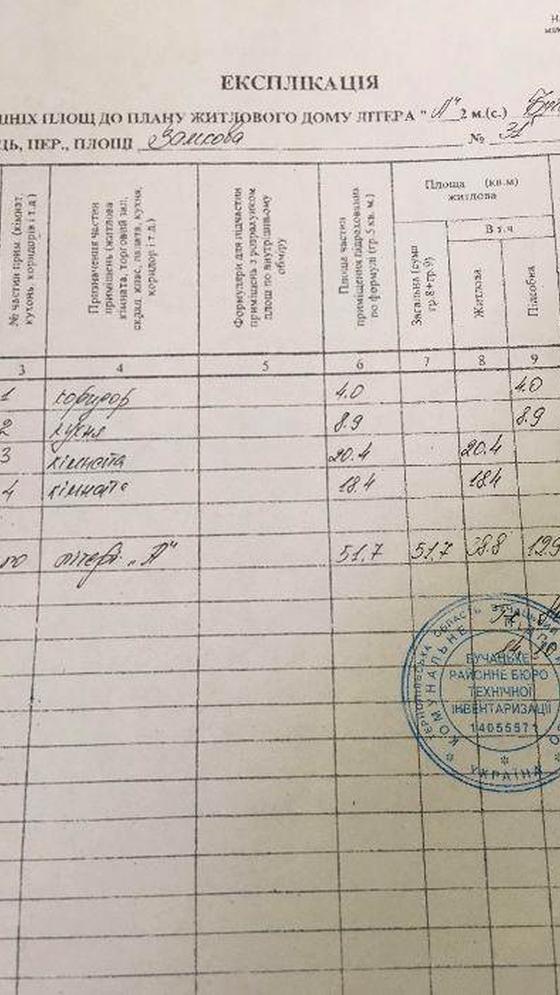 ЕКСПЛІКАЦІЯ
ПЛОЩ ДО ПЛАНУ ЖИТЛОВОГО ДОМУ ЛІТЕРА " А" 2 м.(с.)
ПЕР., ПЛОЩІ Замкова № 31
№ частин прим. (кімнат, кухонь, коридорів і т.д.)
Призначення частин приміщень (житлова кімната, торговий зал, склад, клас, палата, кухня, коридор і т.д.)
Формуляри для підчастин приміщень з розрахунком площ по внутрішньому обміру
Площа частин приміщення підрахованих по формулі (гр.5 кв. м.)
Площа (кв.м)
житлова
Загальна (сума гр.8+гр.9)
В т.ч.
Житлова
Підсобна
3 4 5 6 7 8 9
1 коридор 4.0 4.0
2 кухня 8.9 8.9
3 кімната 20.4 20.4
4 кімната 18.4 18.4
по літері „А" 51.7 51.7 38.8 12.9
КОМУНАЛЬНЕ
БУЧАЦЬКЕ
РАЙОННЕ БЮРО
ТЕХНІЧНОЇ
ІНВЕНТАРИЗАЦІЇ
14055571
УКРАЇНА